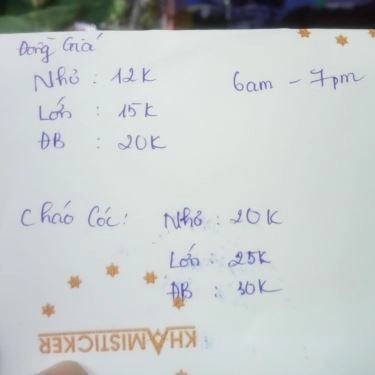 Đồng Giá
Nhỏ : 12K
6am - 7pm
Lớn : 15K
ĐB : 20K
Cháo Cóc: Nhỏ : 20K
Lớn : 25K
ĐB : 30K
KHAMISTICKER